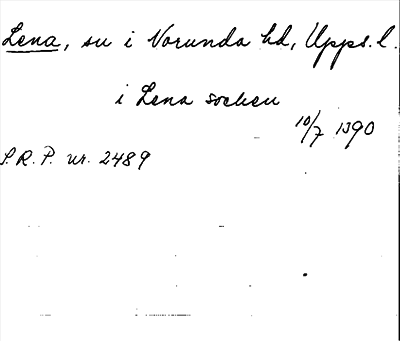 Lena, sn i Norunda hd, Upps. l.
i Lena socken
10/7 1390
S.R.P. nr. 2489